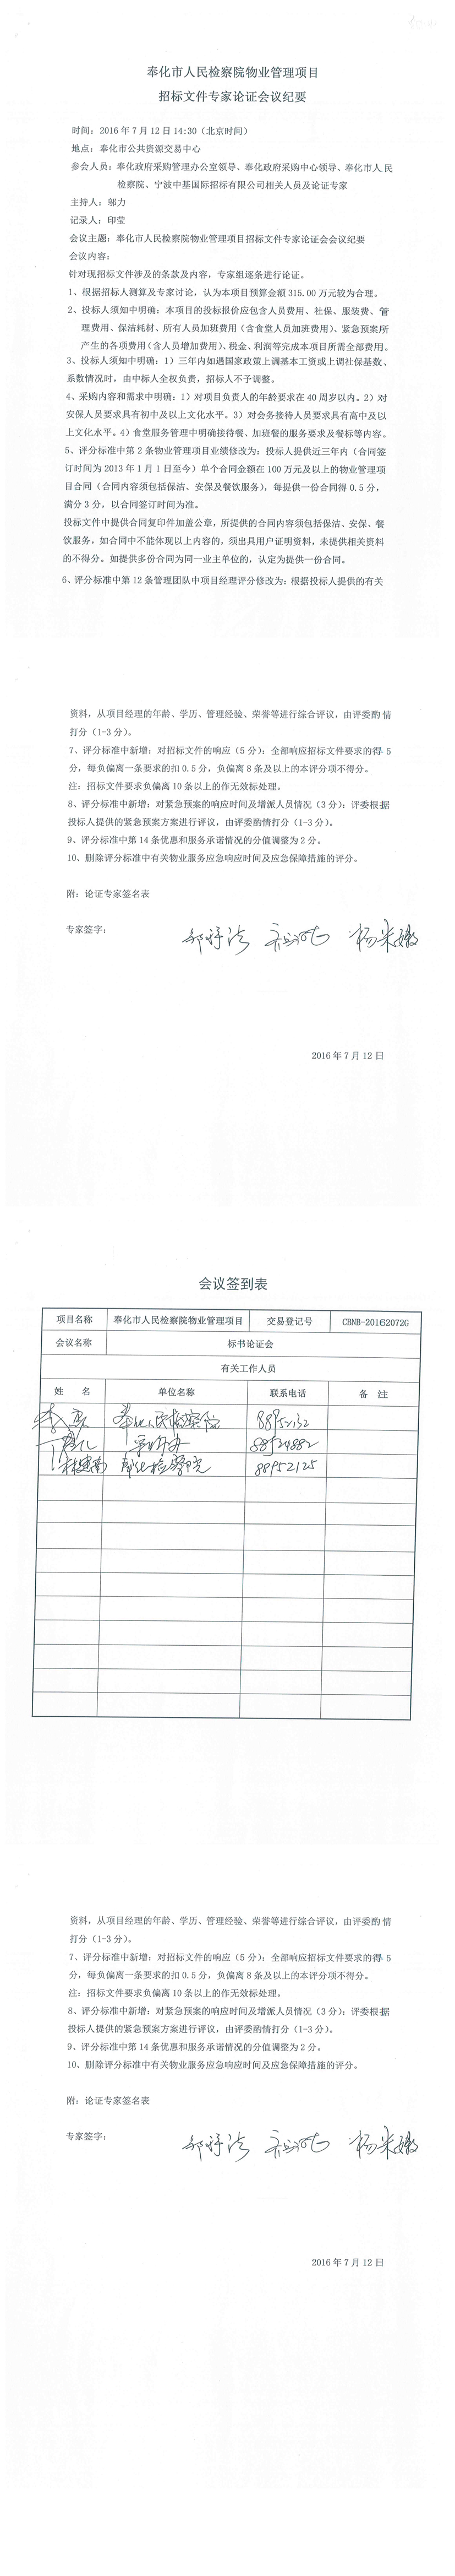 奉化市人民检察院物业管理项目
招标文件专家论证会议纪要
时间：2016年7月12日14:30（北京时间）
地点：奉化市公共资源交易中心
参会人员：奉化政府采购管理办公室领导、奉化政府采购中心领导、奉化市人民
检察院、宁波中基国际招标有限公司相关人员及论证专家
主持人：邬力
记录人：印莹
会议主题：奉化市人民检察院物业管理项目招标文件专家论证会会议纪要
会议内容：
针对现招标文件涉及的条款及内容，专家组逐条进行论证。
1、根据招标人测算及专家讨论，认为本项目预算金额315.00万元较为合理。
2、投标人须知中明确：本项目的投标报价应包含人员费用、社保、服装费、管
理费用、保洁耗材、所有人员加班费用（含食堂人员加班费用）、紧急预案所
产生的各项费用（含人员增加费用）、税金、利润等完成本项目所需全部费用。
3、投标人须知中明确：1）三年内如遇国家政策上调基本工资或上调社保基数、
系数情况时，由中标人全权负责，招标人不予调整。
4、采购内容和需求中明确：1）对项目负责人的年龄要求在40周岁以内。2）对
安保人员要求具有初中及以上文化水平。3）对会务接待人员要求具有高中及以
上文化水平。4）食堂服务管理中明确接待餐、加班餐的服务要求及餐标等内容。
5、评分标准中第2条物业管理项目业绩修改为：投标人提供近三年内（合同签
订时间为2013年1月1日至今）单个合同金额在100万元及以上的物业管理项
目合同（合同内容须包括保洁、安保及餐饮服务），每提供一份合同得0.5分，
满分3分，以合同签订时间为准。
投标文件中提供合同复印件加盖公章，所提供的合同内容须包括保洁、安保、餐
饮服务，如合同中不能体现以上内容的，须出具用户证明资料，未提供相关资料
的不得分。如提供多份合同为同一业主单位的，认定为提供一份合同。
6、评分标准中第12条管理团队中项目经理评分修改为：根据投标人提供的有关
资料，从项目经理的年龄、学历、管理经验、荣誉等进行综合评议，由评委酌情
打分（1-3分）。
7、评分标准中新增：对招标文件的响应（5分）：全部响应招标文件要求的得5
分，每负偏离一条要求的扣0.5分，负偏离8条及以上的本评分项不得分。
注：招标文件要求负偏离10条以上的作无效标处理。
8、评分标准中新增：对紧急预案的响应时间及增派人员情况（3分）：评委根据
投标人提供的紧急预案方案进行评议，由评委酌情打分（1-3分）。
9、评分标准中第14条优惠和服务承诺情况的分值调整为2分。
10、删除评分标准中有关物业服务应急响应时间及应急保障措施的评分。
附：论证专家签名表
专家签字：
2016年7月12日
会议签到表
项目名称 奉化市人民检察院物业管理项目 交易登记号 CBNB-20162072G
会议名称 标书论证会
有关工作人员
姓 名 单位名称 联系电话 备 注
奉化人民检察院 88952132
采购办 88524882
奉化检察院 88952125
资料，从项目经理的年龄、学历、管理经验、荣誉等进行综合评议，由评委酌情
打分（1-3分）。
7、评分标准中新增：对招标文件的响应（5分）：全部响应招标文件要求的得5
分，每负偏离一条要求的扣0.5分，负偏离8条及以上的本评分项不得分。
注：招标文件要求负偏离10条以上的作无效标处理。
8、评分标准中新增：对紧急预案的响应时间及增派人员情况（3分）：评委根据
投标人提供的紧急预案方案进行评议，由评委酌情打分（1-3分）。
9、评分标准中第14条优惠和服务承诺情况的分值调整为2分。
10、删除评分标准中有关物业服务应急响应时间及应急保障措施的评分。
附：论证专家签名表
专家签字：
2016年7月12日